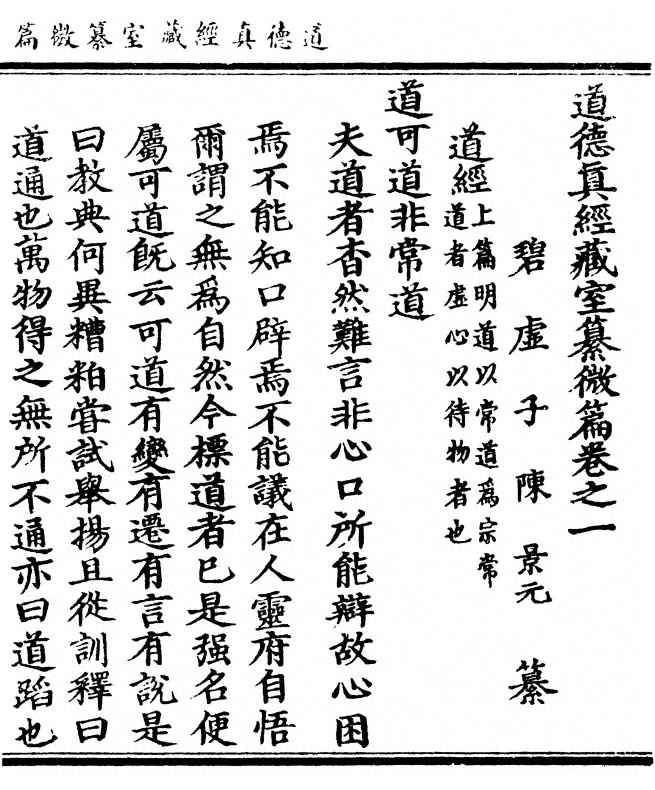 道德真經藏室纂微篇
道德真經藏室纂微篇卷之一
碧虛子陳景元纂
道經上篇明道以常道爲宗常
道者虛心以待物者也
道可道非常道
夫道者杳然難言非心口所能辯故心困
焉不能知口辟焉不能議在人靈府自悟
爾謂之無爲自然今標道者已是强名便
屬可道旣云可道有變有遷有言有說是
曰教典何異糟粕嘗試舉揚且從訓釋曰
道通也萬物得之無所不通亦曰道蹈也